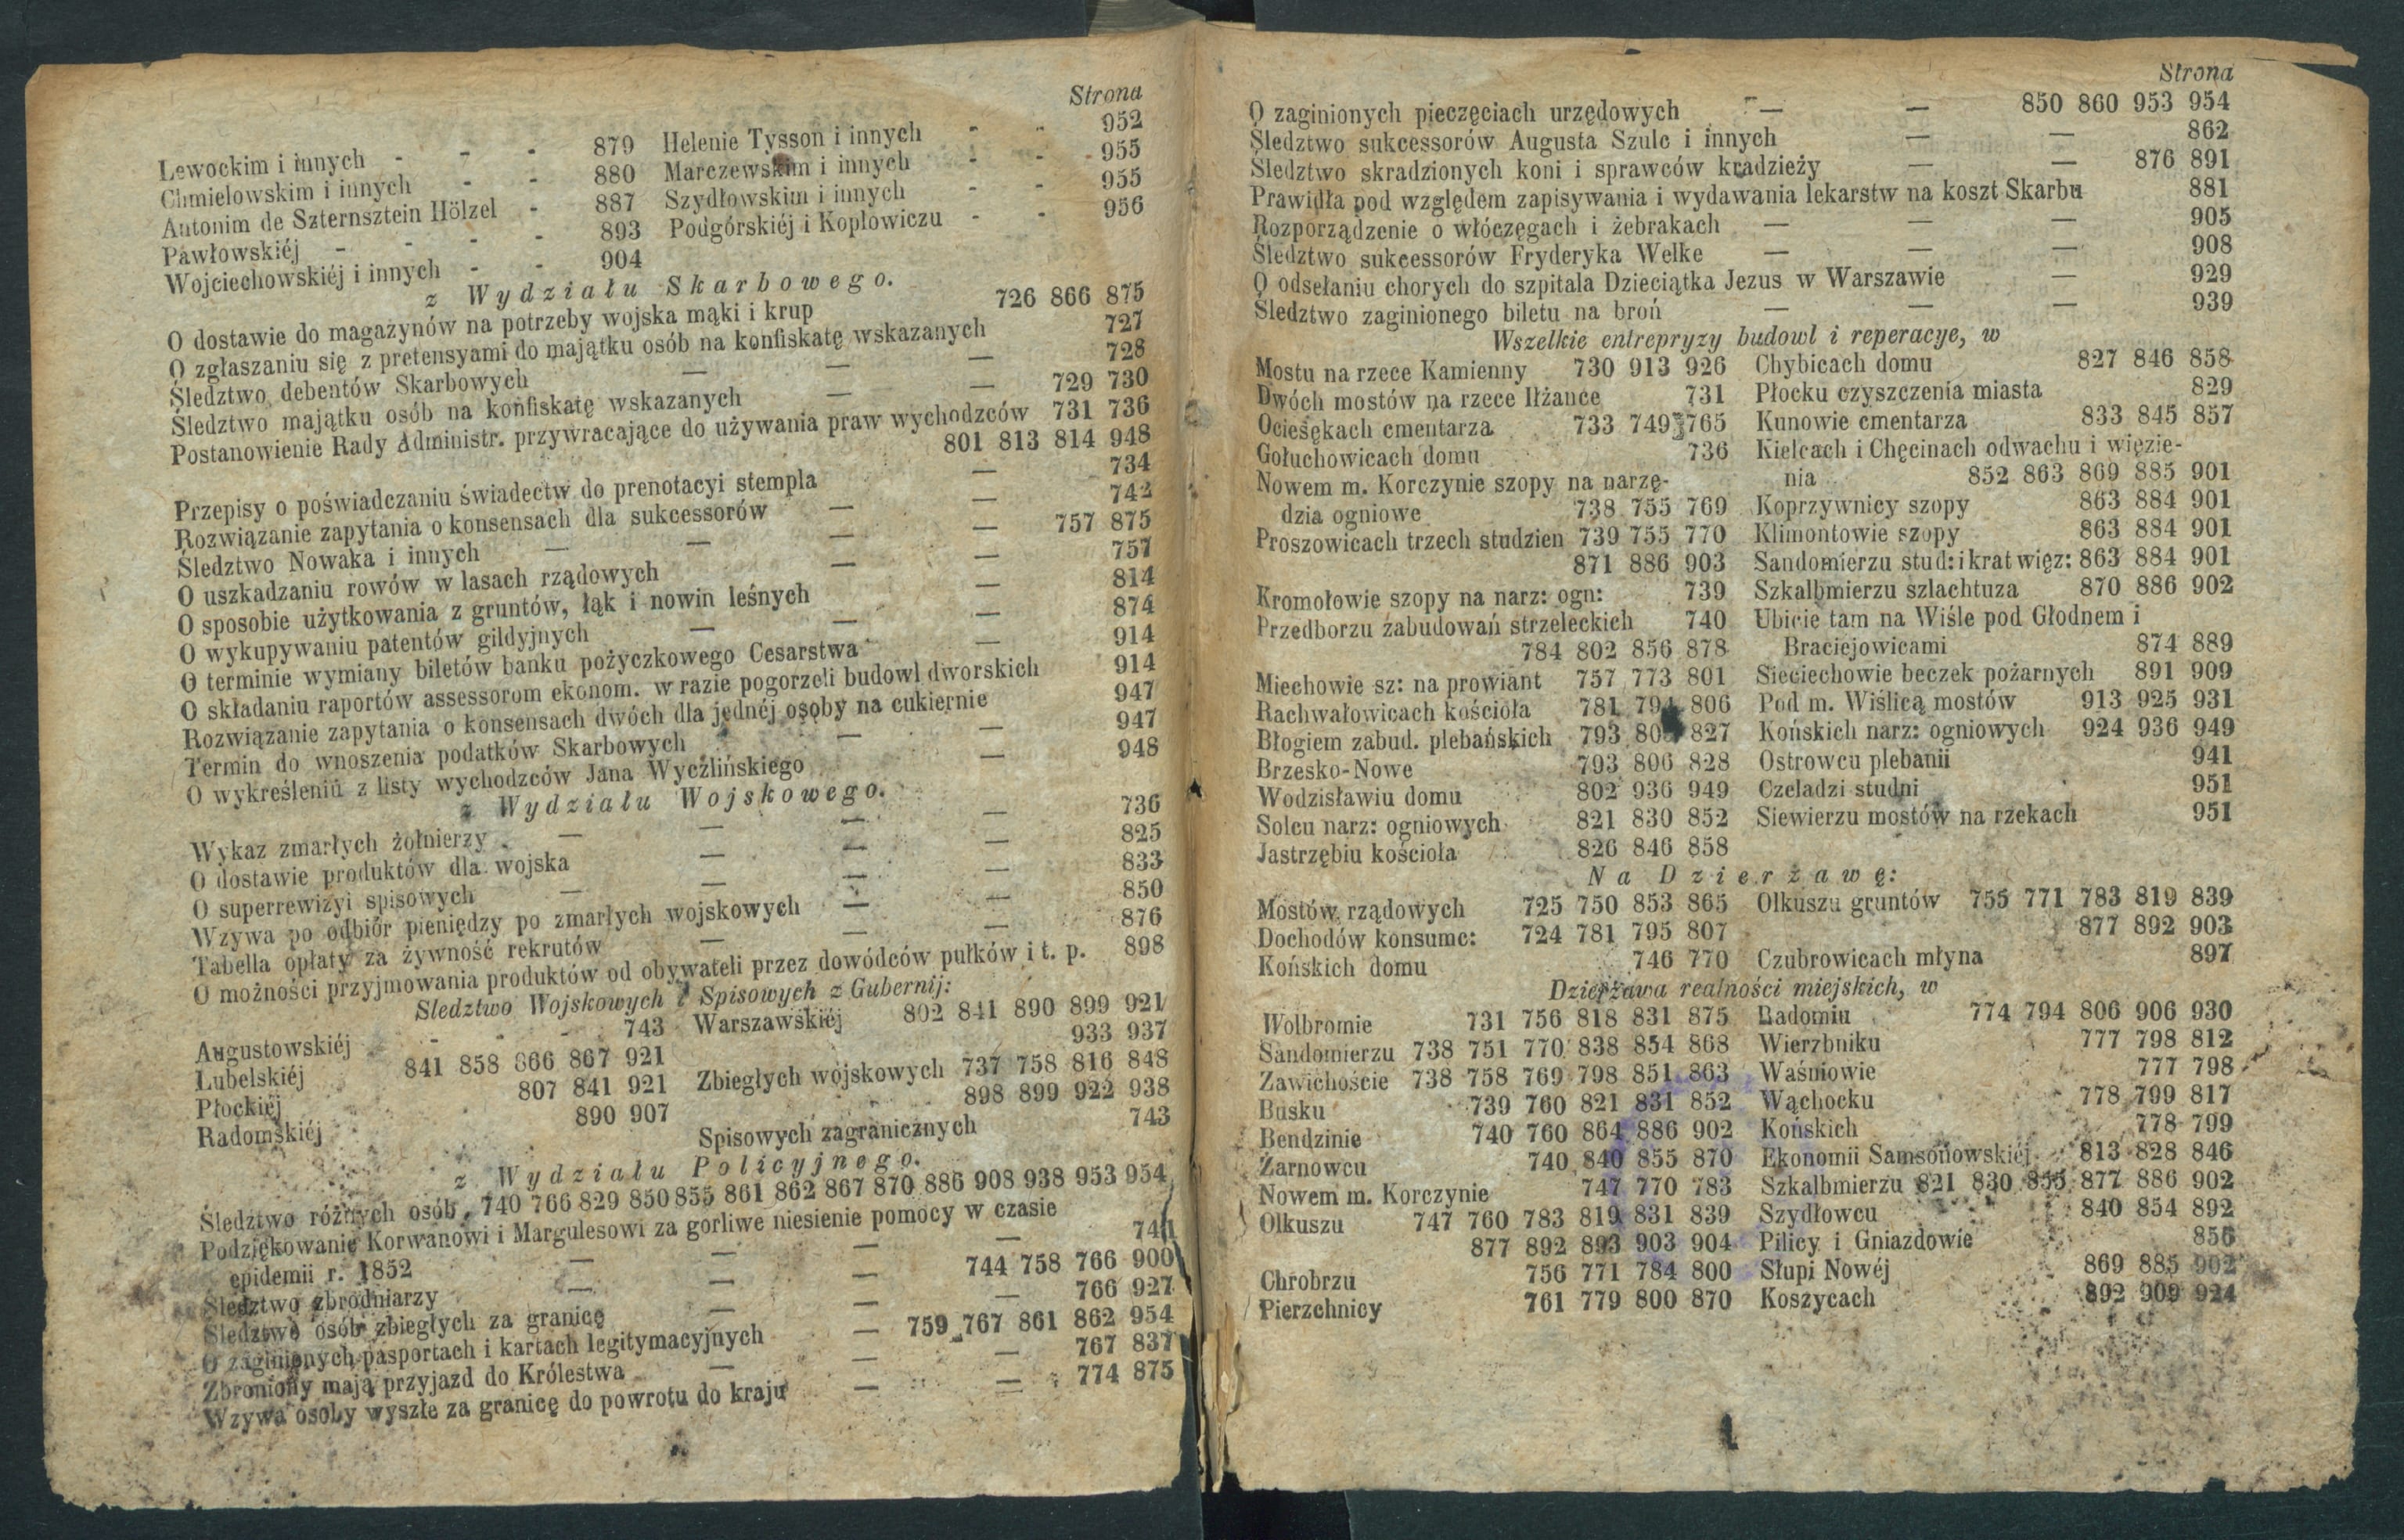 Strona
Lewockim i innych - - - 879 Helenie Tysson i innych - - 952
Chmielowskim i innych - - 880 Marczewskim i innych - - 955
Antonim de Szternsztein Hölzel - 887 Szydłowskim i innych - - 955
Pawłowskiéj - - - - 893 Podgórskiéj i Koplowiczu - - 956
Wojciechowskiéj i innych - - 904
z Wydziału Skarbowego.
O dostawie do magazynów na potrzeby wojska mąki i krup 726 866 875
O zgłaszaniu się z pretensyami do majątku osób na konfiskatę wskazanych 727
Śledztwo debentów Skarbowych — — — 728
Śledztwo majątku osób na konfiskatę wskazanych — — 729 730
Postanowienie Rady Administr. przywracające do używania praw wychodzców 731 736
801 813 814 948
Przepisy o poświadczaniu świadectw do prenotacyi stempla — 734
Rozwiązanie zapytania o konsensach dla sukcessorów — — 742
Śledztwo Nowaka i innych — — — — 757 875
O uszkadzaniu rowów w lasach rządowych — — 757
O sposobie użytkowania z gruntów, łąk i nowin leśnych — 814
O wykupywaniu patentów gildyjnych — — — 874
O terminie wymiany biletów banku pożyczkowego Cesarstwa — 914
O składaniu raportów assessorom ekonom. w razie pogorzeli budowl dworskich 914
Rozwiązanie zapytania o konsensach dwóch dla jednéj osoby na cukiernie 947
Termin do wnoszenia podatków Skarbowych — — 947
O wykreśleniu z listy wychodzców Jana Wyczlińskiego — 948
z Wydziału Wojskowego.
Wykaz zmarłych żołnierzy — — — — 736
O dostawie produktów dla wojska — — — 825
O superrewizyi spisowych — — — — 833
Wzywa po odbiór pieniędzy po zmarłych wojskowych — — 850
Tabella opłaty za żywność rekrutów — — — 876
O możności przyjmowania produktów od obywateli przez dowódców pułków i t. p. 898
Sledztwo Wojskowych i Spisowych z Gubernij:
Augustowskiéj - - - 743 Warszawskiéj 802 841 890 899 921
Lubelskiéj 841 858 866 867 921 933 937
Płockiéj 807 841 921 Zbiegłych wojskowych 737 758 816 848
Radomskiéj 890 907 898 899 922 938
Spisowych zagranicznych 743
z Wydziału Policyjnego.
Śledztwo różnych osób 740 766 829 850 855 861 862 867 870 886 908 938 953 954
Podziękowanie Korwanowi i Margulesowi za gorliwe niesienie pomocy w czasie
epidemii r. 1852 — — — — 741
Śledztwo zbrodniarzy — — — 744 758 766 900
Śledztwo osób zbiegłych za granicę — — — 766 927
O zaginionych pasportach i kartach legitymacyjnych — 759 767 861 862 954
Zbroniony mają przyjazd do Królestwa — — — 767 837
Wzywa osoby wyszłe za granicę do powrotu do kraju — — 774 875
Strona
O zaginionych pieczęciach urzędowych — — 850 860 953 954
Śledztwo sukcessorów Augusta Szulc i innych — — 862
Śledztwo skradzionych koni i sprawców kradzieży — — 876 891
Prawidła pod względem zapisywania i wydawania lekarstw na koszt Skarbu 881
Rozporządzenie o włóczęgach i żebrakach — — — 905
Śledztwo sukcessorów Fryderyka Welke — — — 908
O odsełaniu chorych do szpitala Dzieciątka Jezus w Warszawie — 929
Śledztwo zaginionego biletu na broń — — — 939
Wszelkie entrepryzy budowl i reperacye, w
Mostu na rzece Kamienny 730 913 926 Chybicach domu 827 846 858
Dwóch mostów na rzece Iłżance 731 Płocku czyszczenia miasta 829
Ociesękach cmentarza 733 749 765 Kunowie cmentarza 833 845 857
Gołuchowicach domu 736 Kielcach i Chęcinach odwachu i więzie-
Nowem m. Korczynie szopy na narzę- nia 852 863 869 885 901
dzia ogniowe 738 755 769 Koprzywnicy szopy 863 884 901
Proszowicach trzech studzien 739 755 770 Klimontowie szopy 863 884 901
871 886 903 Sandomierzu stud: i krat więz: 863 884 901
Kromołowie szopy na narz: ogn: 739 Szkalbmierzu szlachtuza 870 886 902
Przedborzu zabudowań strzeleckich 740 Ubicie tam na Wiśle pod Głodnem i
784 802 856 878 Braciejowicami 874 889
Miechowie sz: na prowiant 757 773 801 Sieciechowie beczek pożarnych 891 909
Rachwałowicach kościoła 781 794 806 Pod m. Wiślicą mostów 913 925 931
Błogiem zabud. plebańskich 793 827 Końskich narz: ogniowych 924 936 949
Brzesko-Nowe 793 806 828 Ostrowcu plebanii 941
Wodzisławiu domu 802 936 949 Czeladzi studni 951
Solcu narz: ogniowych 821 830 852 Siewierzu mostów na rzekach 951
Jastrzębiu kościoła 826 846 858
Na Dzierżawę:
Mostów rządowych 725 750 853 865 Olkuszu gruntów 755 771 783 819 839
Dochodów konsumc: 724 781 795 807 877 892 903
Końskich domu 746 770 Czubrowicach młyna 897
Dzierżawa realności miejskich, w
Wolbromie 731 756 818 831 875 Radomiu 774 794 806 906 930
Sandomierzu 738 751 770 838 854 868 Wierzbniku 777 798 812
Zawichoście 738 758 769 798 851 863 Waśniowie 777 798
Busku 739 760 821 831 852 Wąchocku 778 799 817
Bendzinie 740 760 864 886 902 Końskich 778 799
Żarnowcu 740 840 855 870 Ekonomii Samsonowskiéj 813 828 846
Nowem m. Korczynie 747 770 783 Szkalbmierzu 821 830 855 877 886 902
Olkuszu 747 760 783 819 831 839 Szydłowcu 840 854 892
877 892 893 903 904 Pilicy i Gniazdowie 856
Chrobrzu 756 771 784 800 Słupi Nowéj 869 885 902
Pierzchnicy 761 779 800 870 Koszycach 892 909 924